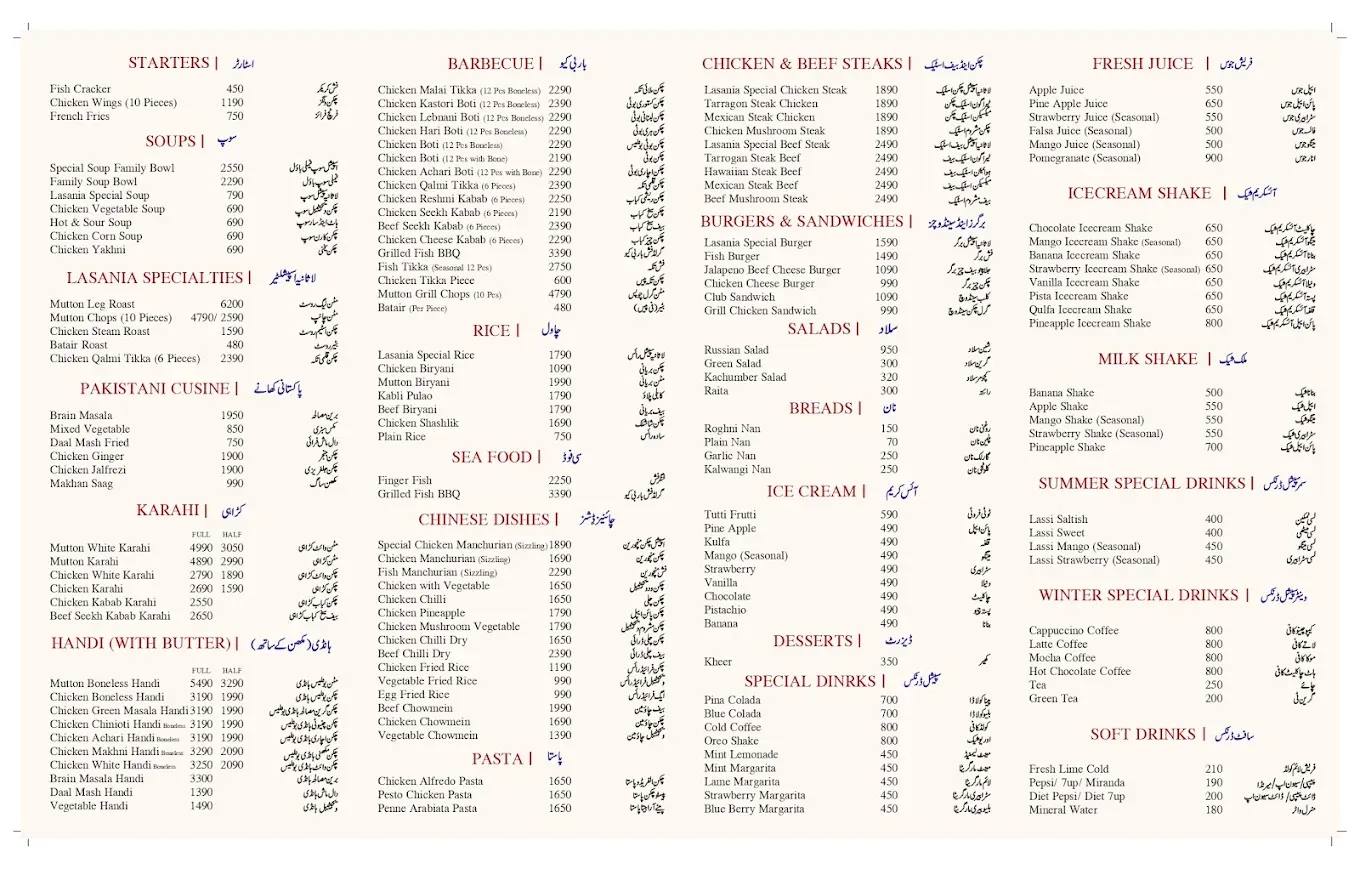 STARTERS | اسٹارٹر
Fish Cracker 450 فش کریکر
Chicken Wings (10 Pieces) 1190 چکن ونگز
French Fries 750 فرنچ فرائز
SOUPS | سوپ
Special Soup Family Bowl 2550 اسپیشل سوپ فیملی باؤل
Family Soup Bowl 2290 فیملی سوپ باؤل
Lasania Special Soup 790 لاثانیہ اسپیشل سوپ
Chicken Vegetable Soup 690 چکن ویجیٹیبل سوپ
Hot & Sour Soup 690 ہاٹ اینڈ سار سوپ
Chicken Corn Soup 690 چکن کارن سوپ
Chicken Yakhni 690 چکن یخنی
LASANIA SPECIALTIES | لاثانیہ اسپیشلٹیز
Mutton Leg Roast 6200 مٹن لیگ روسٹ
Mutton Chops (10 Pieces) 4790/ 2590 مٹن چانپ
Chicken Steam Roast 1590 چکن اسٹیم روسٹ
Batair Roast 480 بٹیر روسٹ
Chicken Qalmi Tikka (6 Pieces) 2390 چکن قلمی تکہ
PAKISTANI CUSINE | پاکستانی کھانے
Brain Masala 1950 برین مصالحہ
Mixed Vegetable 850 مکس سبزی
Daal Mash Fried 750 دال ماش فرائی
Chicken Ginger 1900 چکن جنجر
Chicken Jalfrezi 1900 چکن جلفریزی
Makhan Saag 990 مکھن ساگ
KARAHI | کڑاہی
FULL HALF
Mutton White Karahi 4990 3050 مٹن وائٹ کڑاہی
Mutton Karahi 4890 2990 مٹن کڑاہی
Chicken White Karahi 2790 1890 چکن وائٹ کڑاہی
Chicken Karahi 2690 1590 چکن کڑاہی
Chicken Kabab Karahi 2550 چکن کباب کڑاہی
Beef Seekh Kabab Karahi 2650 بیف سیخ کباب کڑاہی
HANDI (WITH BUTTER) | ہانڈی (مکھن کے ساتھ)
FULL HALF
Mutton Boneless Handi 5490 3290 مٹن بونلیس ہانڈی
Chicken Boneless Handi 3190 1990 چکن بونلیس ہانڈی
Chicken Green Masala Handi 3190 1990 چکن گرین مصالحہ ہانڈی بونلیس
Chicken Chinioti Handi Boneless 3190 1990 چکن چنیوٹی ہانڈی بونلیس
Chicken Achari Handi Boneless 3190 1990 چکن اچاری ہانڈی بونلیس
Chicken Makhni Handi Boneless 3290 2090 چکن مکھنی ہانڈی بونلیس
Chicken White Handi Boneless 3250 2090 چکن وائٹ ہانڈی بونلیس
Brain Masala Handi 3300 برین مصالحہ ہانڈی
Daal Mash Handi 1390 دال ماش ہانڈی
Vegetable Handi 1490 ویجیٹیبل ہانڈی
BARBECUE | باربی کیو
Chicken Malai Tikka (12 Pcs Boneless) 2290 چکن ملائی تکہ
Chicken Kastori Boti (12 Pcs Boneless) 2390 چکن کستوری بوٹی
Chicken Lebnani Boti (12 Pcs Boneless) 2290 چکن لبنانی بوٹی
Chicken Hari Boti (12 Pcs Boneless) 2290 چکن ہری بوٹی
Chicken Boti (12 Pcs Boneless) 2290 چکن بوٹی بونلیس
Chicken Boti (12 Pcs with Bone) 2190 چکن بوٹی
Chicken Achari Boti (12 Pcs with Bone) 2190 چکن اچاری بوٹی
Chicken Qalmi Tikka (6 Pieces) 2390 چکن قلمی تکہ
Chicken Reshmi Kabab (6 Pieces) 2250 چکن ریشمی کباب
Chicken Seekh Kabab (6 Pieces) 2190 چکن سیخ کباب
Beef Seekh Kabab (6 Pieces) 2290 بیف سیخ کباب
Chicken Cheese Kabab (6 Pieces) 2290 چکن چیز کباب
Grilled Fish BBQ 3390 گرلڈ فش باربی کیو
Fish Tikka (Seasonal 12 Pcs) 2750 فش تکہ
Chicken Tikka Piece 600 چکن تکہ پیس
Mutton Grill Chops (10 Pcs) 4790 مٹن گرل چوپس
Batair (Per Piece) 480 بٹیر (فی پیس)
RICE | چاول
Lasania Special Rice 1790 لاثانیہ اسپیشل رائس
Chicken Biryani 1090 چکن بریانی
Mutton Biryani 1990 مٹن بریانی
Kabli Pulao 1790 کابلی پلاؤ
Beef Biryani 1790 بیف بریانی
Chicken Shashlik 1690 چکن شاشلک
Plain Rice 750 سادہ رائس
SEA FOOD | سی فوڈ
Finger Fish 2250 فنگر فش
Grilled Fish BBQ 3390 گرلڈ فش باربی کیو
CHINESE DISHES | چائنیز ڈشز
Special Chicken Manchurian (Sizzling) 1890 اسپیشل چکن منچورین
Chicken Manchurian (Sizzling) 1690 چکن منچورین
Fish Manchurian (Sizzling) 2290 فش منچورین
Chicken with Vegetable 1650 چکن ود ویجیٹیبل
Chicken Chilli 1650 چکن چلی
Chicken Pineapple 1790 چکن پائن ایپل
Chicken Mushroom Vegetable 1790 چکن مشروم ویجیٹیبل
Chicken Chilli Dry 1650 چکن چلی ڈرائی
Beef Chilli Dry 2390 بیف چلی ڈرائی
Chicken Fried Rice 1190 چکن فرائیڈ رائس
Vegetable Fried Rice 990 ویجیٹیبل فرائیڈ رائس
Egg Fried Rice 990 ایگ فرائیڈ رائس
Beef Chowmein 1990 بیف چاؤمین
Chicken Chowmein 1690 چکن چاؤمین
Vegetable Chowmein 1390 ویجیٹیبل چاؤمین
PASTA | پاستا
Chicken Alfredo Pasta 1650 چکن الفریڈو پاستا
Pesto Chicken Pasta 1650 پیسٹو چکن پاستا
Penne Arabiata Pasta 1650 پینے آرابیٹا پاستا
CHICKEN & BEEF STEAKS | چکن اینڈ بیف اسٹیک
Lasania Special Chicken Steak 1890 لاثانیہ اسپیشل چکن اسٹیک
Tarragon Steak Chicken 1890 ٹیراگون اسٹیک چکن
Mexican Steak Chicken 1890 میکسیکن اسٹیک چکن
Chicken Mushroom Steak 1890 چکن مشروم اسٹیک
Lasania Special Beef Steak 2490 لاثانیہ اسپیشل بیف اسٹیک
Tarrogan Steak Beef 2490 ٹیراگون اسٹیک بیف
Hawaiian Steak Beef 2490 ہوائین اسٹیک بیف
Mexican Steak Beef 2490 میکسیکن اسٹیک بیف
Beef Mushroom Steak 2490 بیف مشروم اسٹیک
BURGERS & SANDWICHES | برگرز اینڈ سینڈوچز
Lasania Special Burger 1590 لاثانیہ اسپیشل برگر
Fish Burger 1490 فش برگر
Jalapeno Beef Cheese Burger 1090 جلاپینو بیف چیز برگر
Chicken Cheese Burger 990 چکن چیز برگر
Club Sandwich 1090 کلب سینڈوچ
Grill Chicken Sandwich 990 گرل چکن سینڈوچ
SALADS | سلاد
Russian Salad 950 رشین سلاد
Green Salad 300 گرین سلاد
Kachumber Salad 320 کچومر سلاد
Raita 300 رائتہ
BREADS | نان
Roghni Nan 150 روغنی نان
Plain Nan 70 پلین نان
Garlic Nan 250 گارلک نان
Kalwangi Nan 250 کلونجی نان
ICE CREAM | آئس کریم
Tutti Frutti 590 ٹوٹی فروٹی
Pine Apple 490 پائن ایپل
Kulfa 490 قلفہ
Mango (Seasonal) 490 مینگو
Strawberry 490 سٹرابیری
Vanilla 490 ونیلا
Chocolate 490 چاکلیٹ
Pistachio 490 پستہ
Banana 490 بنانا
DESSERTS | ڈیزرٹ
Kheer 350 کھیر
SPECIAL DINRKS | سپیشل ڈرنکس
Pina Colada 700 پینا کولاڈا
Blue Colada 700 بلیو کولاڈا
Cold Coffee 800 کولڈ کافی
Oreo Shake 800 اوریو شیک
Mint Lemonade 450 منٹ لیمنیڈ
Mint Margarita 450 منٹ مارگریٹا
Lame Margarita 450 لائم مارگریٹا
Strawberry Margarita 450 سٹرابیری مارگریٹا
Blue Berry Margarita 450 بلیوبیری مارگریٹا
FRESH JUICE | فریش جوس
Apple Juice 550 ایپل جوس
Pine Apple Juice 650 پائن ایپل جوس
Strawberry Juice (Seasonal) 550 سٹرابیری جوس
Falsa Juice (Seasonal) 500 فالسہ جوس
Mango Juice (Seasonal) 500 مینگو جوس
Pomegranate (Seasonal) 900 انار جوس
ICECREAM SHAKE | آئسکریم شیک
Chocolate Icecream Shake 650 چاکلیٹ آئسکریم شیک
Mango Icecream Shake (Seasonal) 650 مینگو آئسکریم شیک
Banana Icecream Shake 650 بنانا آئسکریم شیک
Strawberry Icecream Shake (Seasonal) 650 سٹرابیری آئسکریم شیک
Vanilla Icecream Shake 650 ونیلا آئسکریم شیک
Pista Icecream Shake 650 پستہ آئسکریم شیک
Qulfa Icecream Shake 650 قلفہ آئسکریم شیک
Pineapple Icecream Shake 800 پائن ایپل آئسکریم شیک
MILK SHAKE | ملک شیک
Banana Shake 500 بنانا شیک
Apple Shake 550 ایپل شیک
Mango Shake (Seasonal) 550 مینگو شیک
Strawberry Shake (Seasonal) 550 سٹرابیری شیک
Pineapple Shake 700 پائن ایپل شیک
SUMMER SPECIAL DRINKS | سمر سپیشل ڈرنکس
Lassi Saltish 400 لسی نمکین
Lassi Sweet 400 لسی میٹھی
Lassi Mango (Seasonal) 450 لسی مینگو
Lassi Strawberry (Seasonal) 450 لسی سٹرابیری
WINTER SPECIAL DRINKS | ونٹر سپیشل ڈرنکس
Cappuccino Coffee 800 کیپوچینو کافی
Latte Coffee 800 لاٹے کافی
Mocha Coffee 800 موکا کافی
Hot Chocolate Coffee 800 ہاٹ چاکلیٹ کافی
Tea 250 چائے
Green Tea 200 گرین ٹی
SOFT DRINKS | سافٹ ڈرنکس
Fresh Lime Cold 210 فریش لائم کولڈ
Pepsi/ 7up/ Miranda 190 پیپسی/سیون اپ/میرنڈا
Diet Pepsi/ Diet 7up 200 ڈائٹ پیپسی/ ڈائٹ سیون اپ
Mineral Water 180 منرل واٹر